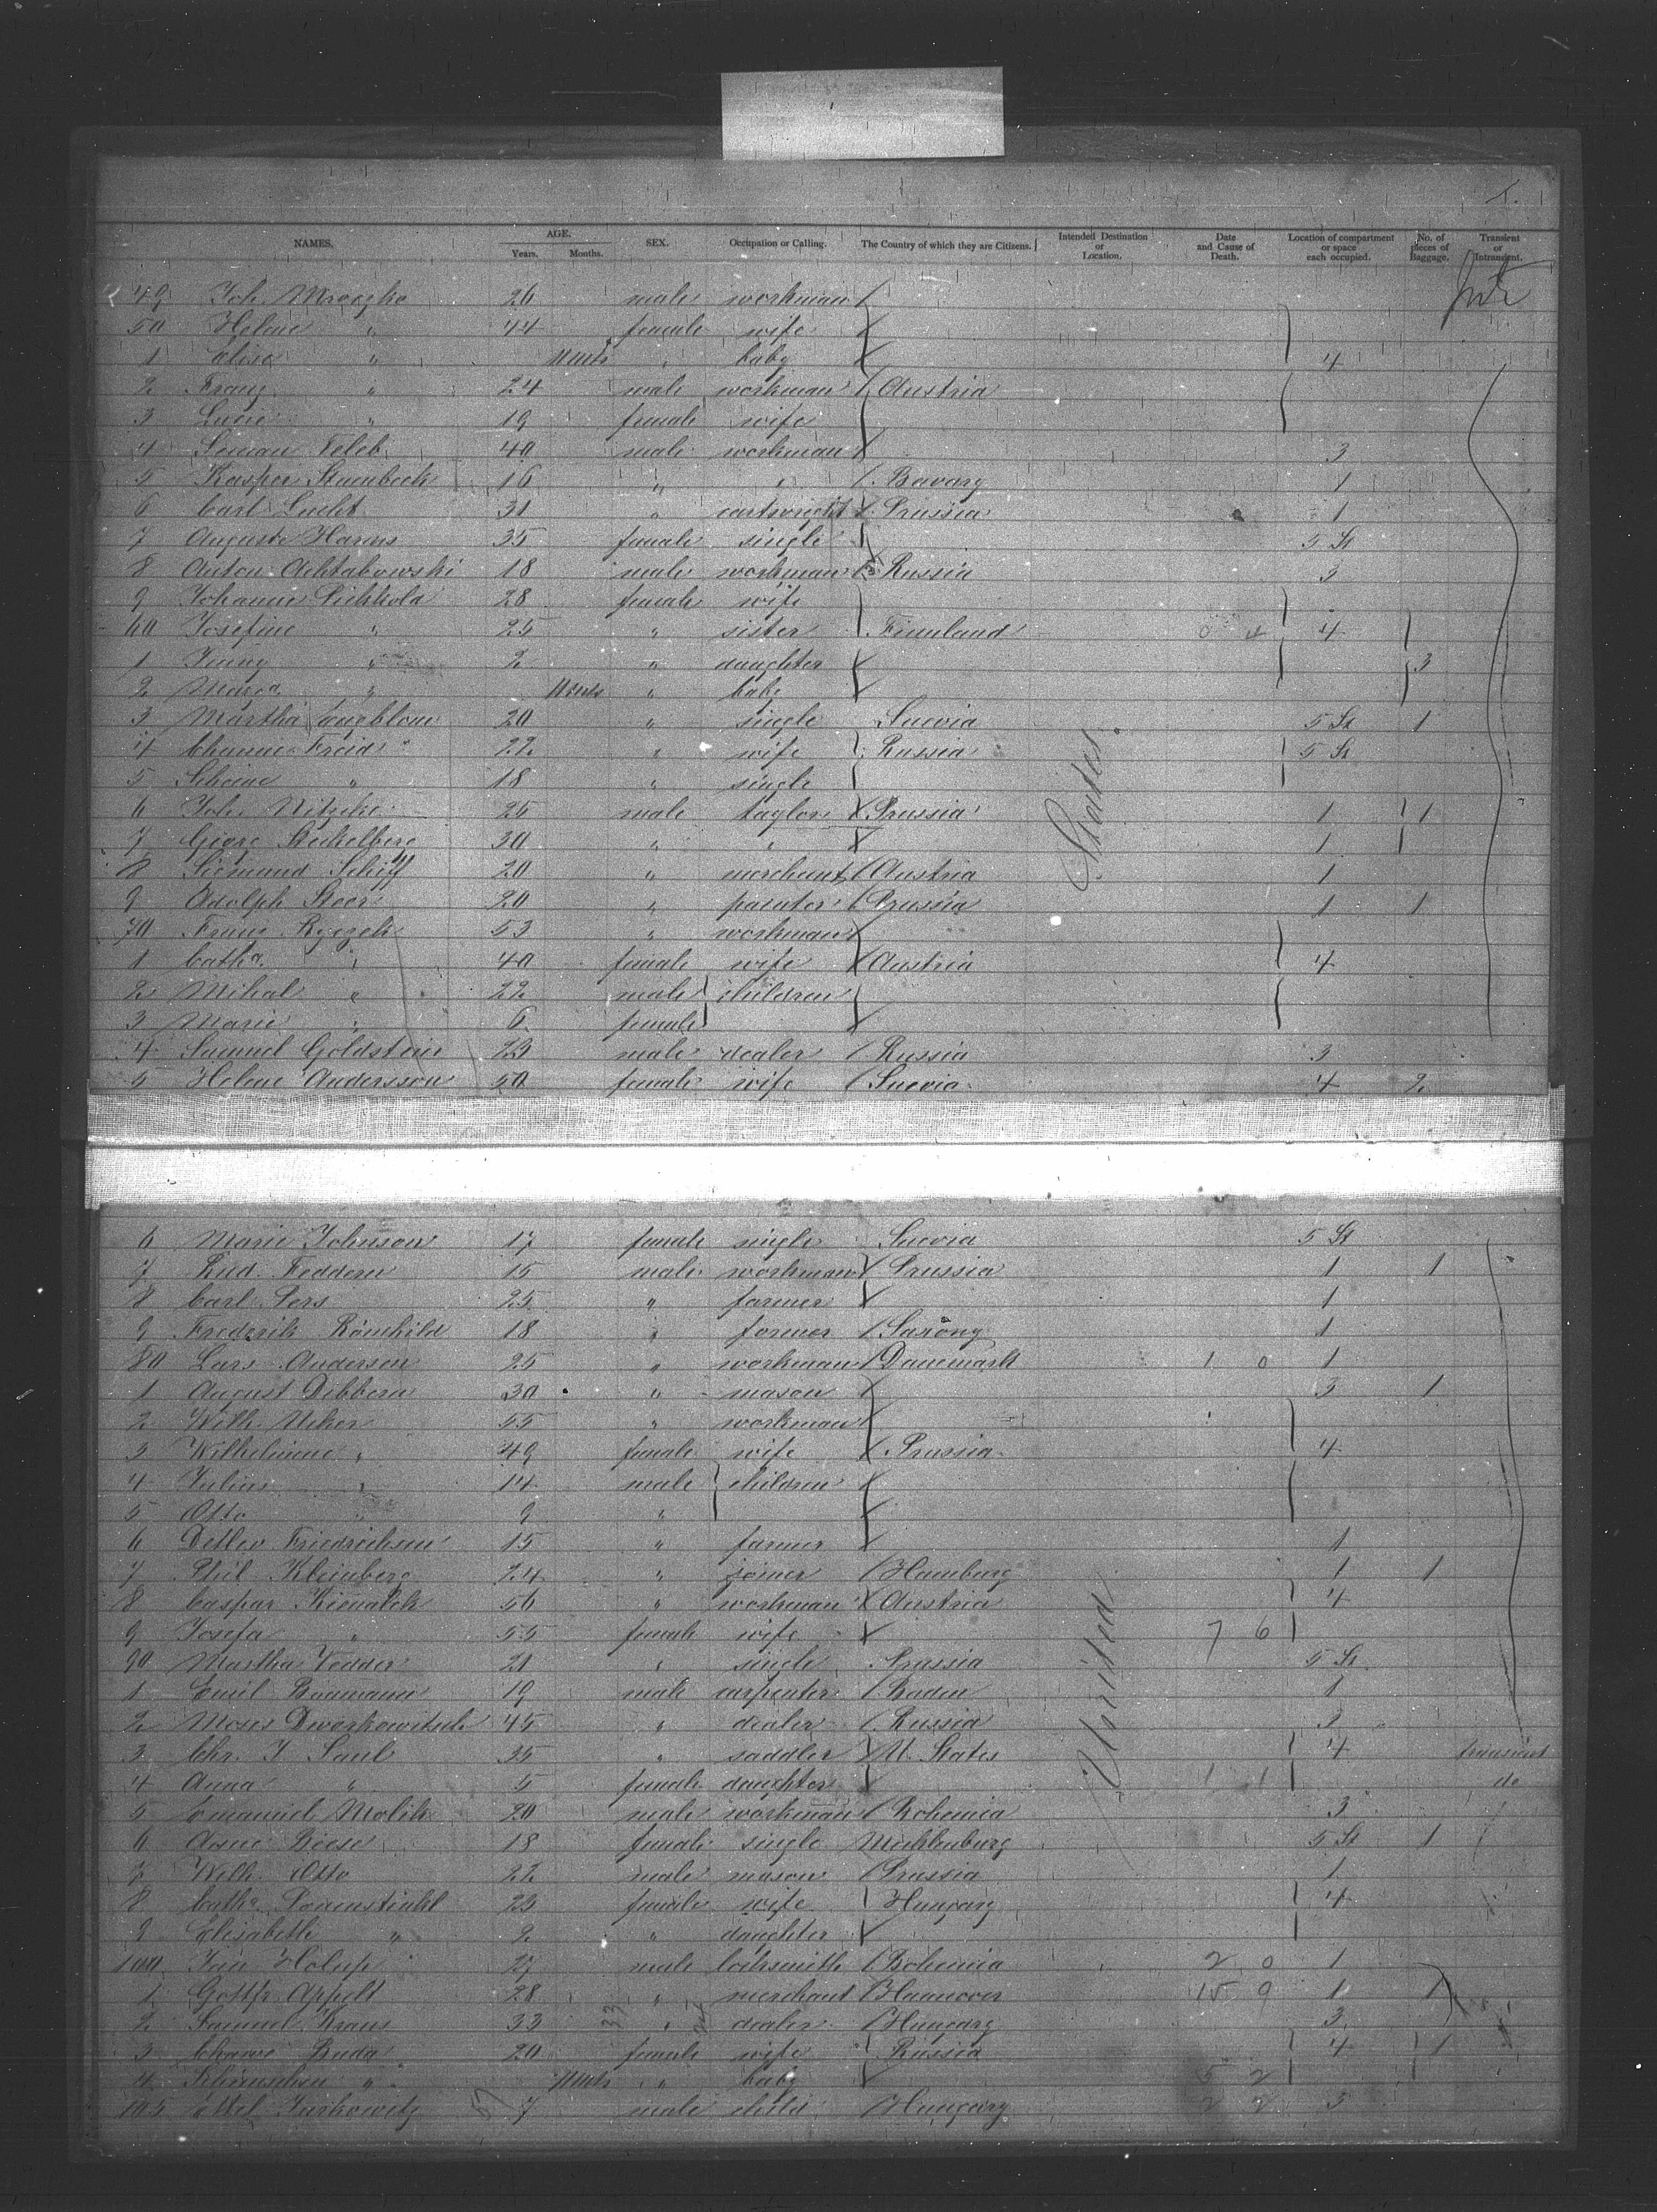 1.
NAMES. AGE. SEX. Occupation or Calling. The Country of which they are Citizens. Intended Destination or Location. Date and Cause of Death. Location of compartment or space each occupied. No. of pieces of Baggage. Transient or Intransient.
Years. Months.
49 Joh. Mroczko 26 male workman
50 Helene " 44 female wife
1 Elise " 11 mts " baby 4
2 Franz " 24 male workman Austria
3 " 19 female wife
4 40 male workman 3
5 Kasper Steinbeck 16 " " Bavary 1
6 Carl Lucht 31 " cartwright Prussia 1
7 Auguste Harms 35 female single 5 St
8 Anton Achtabowski 18 male workman Russia 3
9 Johanne 28 female wife
60 Josefine " 25 " sister Finnland 0 4 4
1 Jenny " 2 " daughter 3
2 Maria " 11 mts " baby
3 Martha Engblom 20 " single Suevia 5 St 1
4 Freid 22 " wife Russia 5 St
5 " 18 " single
6 Joh. Nitzcke 25 male taylor Prussia 1 1
7 Georg Steckelberg 30 " " 1
8 Siemund Schiff 20 " merchant Austria 1
9 Adolph Steer 20 " painter Prussia 1 1
70 Franz Ryczek 53 " workman
1 Catha. " 40 female wife Austria 4
2 Mihal " 22 male children
3 Marie " 6 female
4 Samuel Goldstein 23 male dealer Russia 3
5 Helene Andersson 50 female wife Suevia 4 2
6 Marie Johnson 17 female single Suevia 5 St
7 Rud. Feddern 15 male workman Prussia 1 1
8 Carl Pers 25 " farmer 1
9 Frederik Römhild 18 " farmer Saxony 1
80 Lars Anderson 25 " workman Danemark 1 0 1
1 August Dibbern 30 " mason 3 1
2 Wilh. 55 " workman
3 Wilhelmine " 49 female wife Prussia 4
4 Julius " 14 male children
5 Otto " 9 "
6 Detlev Friedrichsen 15 " farmer 1
7 Phil. Kleinberg 24 " joiner Hamburg 1 1
8 Caspar 56 " workman Austria 4
9 Josefa " 55 female wife 7 6
90 Martha Vedder 21 " single Prussia 5 St
1 Emil Baumann 19 male carpenter Baden 1
2 Moses Dworkowitsch 45 " dealer Russia 3
3 Chr. J Saul 35 " saddler U. States 4 transient
4 Anna " 5 female daughter 1 1 do
5 Emanuel Molik 20 male workman Bohemia 3
6 Anne Biese 18 female single Mecklenburg 5 St 1
7 Wilh. Otto 22 male mason Prussia 1
8 Catha. 23 female wife Hungary 4
9 Elisabeth " 2 " daughter
100 Jan Holup 27 male locksmith Bohemia 2 0 1
1 Gottfr. Appelt 28 " merchant Hannover 15 9 1 1
2 Samuel Kraus 33 " dealer Hungary 3
3 Buda 20 female wife Russia 4 1
4 " 11 mts " baby 5 2
105 Ettel Jaskowitz 7 male child Hungary 2 2 3
United States.